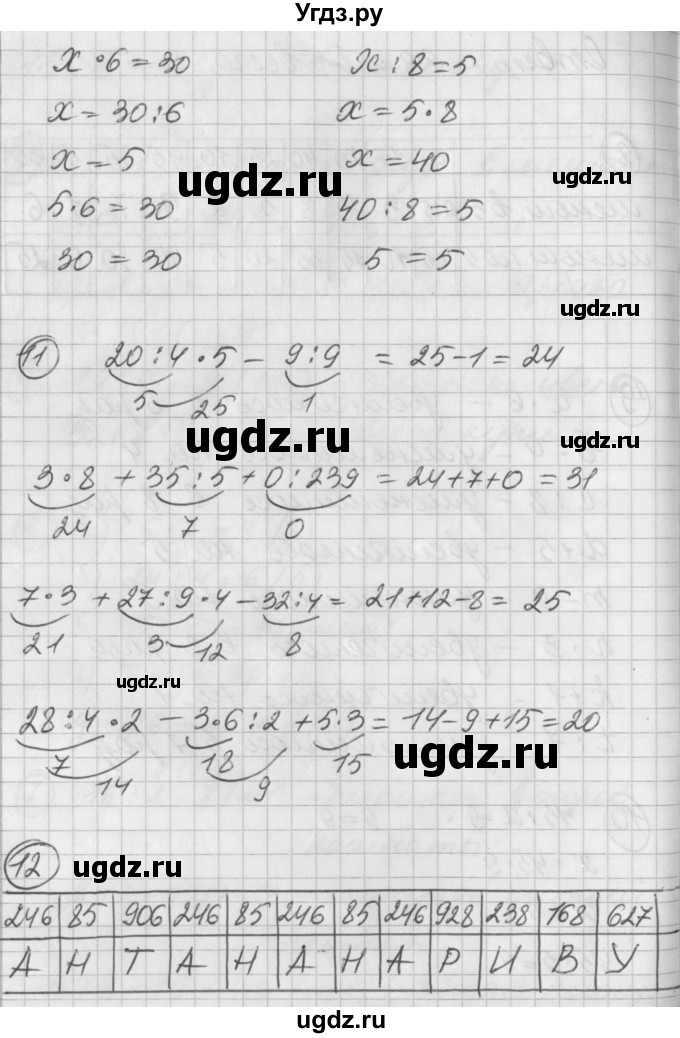 Угдз.ру
x · 6 = 30 x : 8 = 5
x = 30 : 6 x = 5 · 8
x = 5 x = 40
ugdz.ru ugdz.ru
5 · 6 = 30 40 : 8 = 5
30 = 30 5 = 5
ugdz.ru
11 20 : 4 · 5 - 9 : 9 = 25 - 1 = 24
5 25 1
ugdz.ru ugdz.ru
3 · 8 + 35 : 5 + 0 : 239 = 24 + 7 + 0 = 31
24 7 0
7 · 3 + 27 : 9 · 4 - 32 : 4 = 21 + 12 - 8 = 25
21 3 12 8
ugdz.ru
28 : 4 · 2 - 3 · 6 : 2 + 5 · 3 = 14 - 9 + 15 = 20
7 14 18 9 15
ugdz.ru
12
ugdz.ru ugdz.ru
246 85 906 246 85 246 85 246 928 238 168 627
А Н Т А Н А Н А Р И В У
ugdz.ru